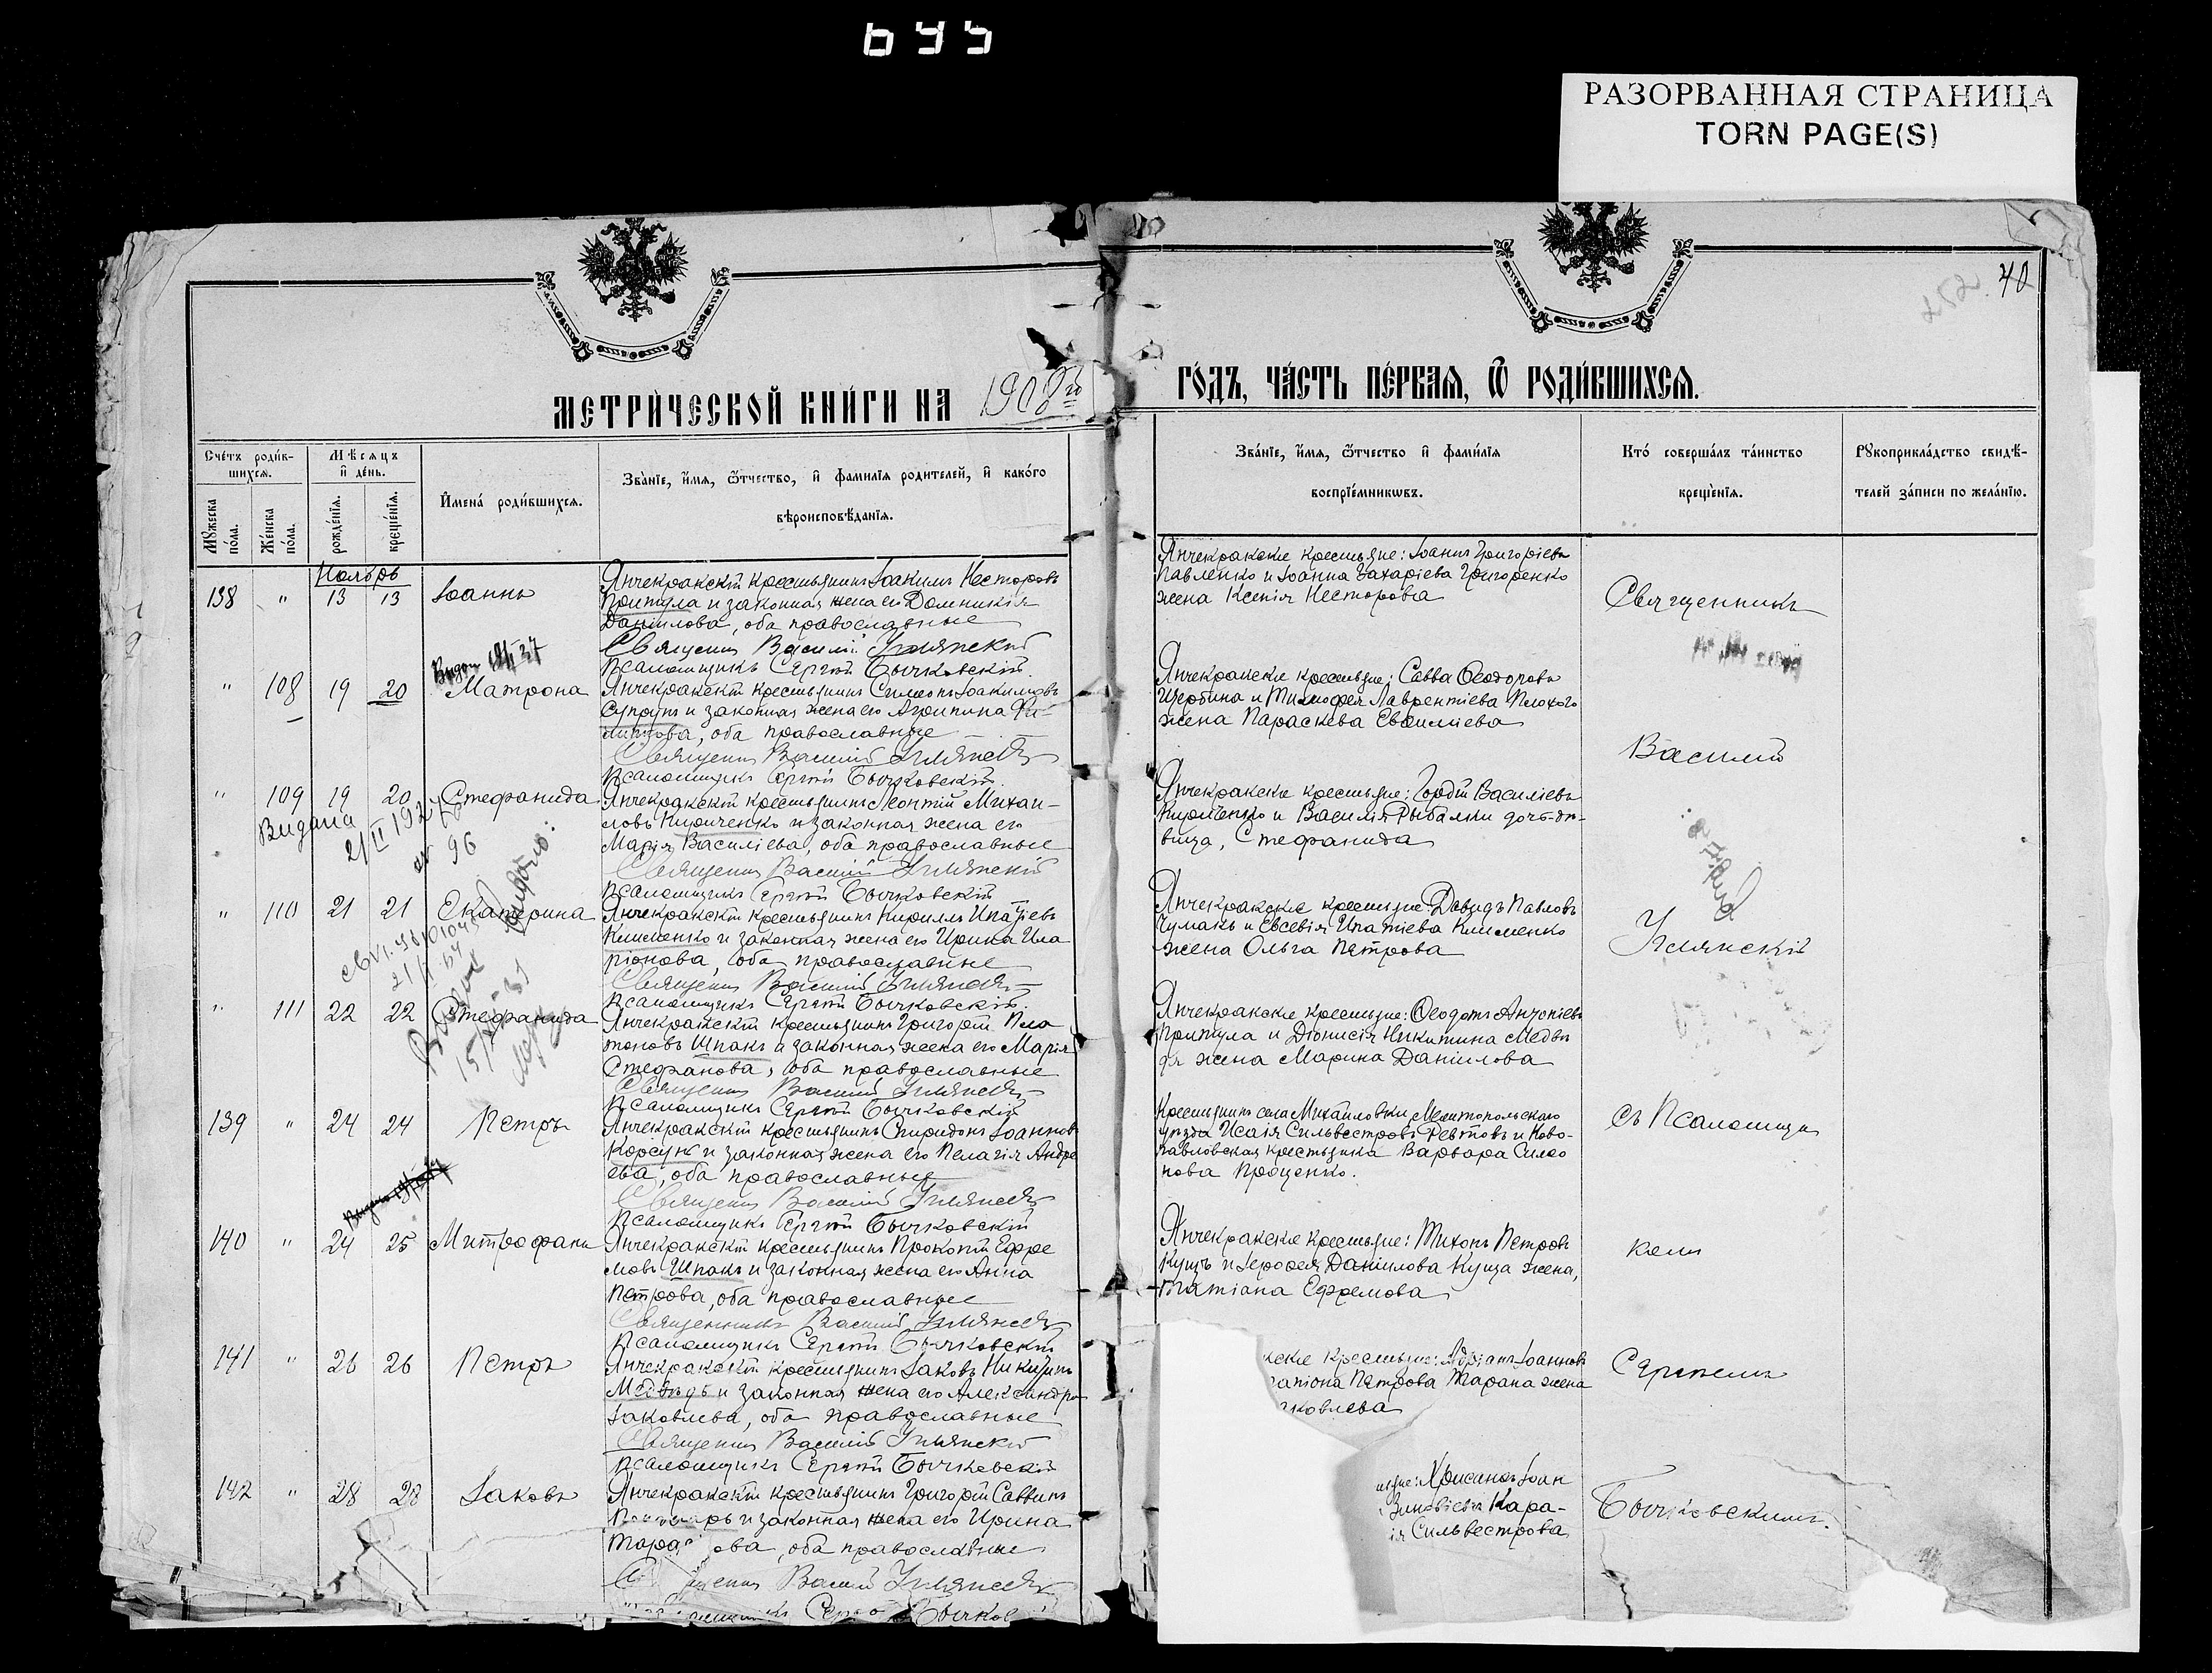 695
РАЗОРВАННАЯ СТРАНИЦА
TORN PAGE(S)
40
МЕТРИЧЕСКОЙ КНИГИ НА 1908 го
ГОДЪ, ЧАСТЬ ПЕРВАЯ, Ѿ РОДИВШИХСЯ.
Счетъ родившихся.
Мѣсяцъ и день.
Мужеска пола.
Женска пола.
рожденія.
крещенія.
Имена родившихся.
Званіе, имя, ѿтчество, и фамилія родителей, и какого
вѣроисповѣданія.
Званіе, имя, ѿтчество и фамилія
воспріемникѡвъ.
Кто совершалъ таинство
крещенія.
Рукоприкладство свидѣ-
телей записи по желанію.
Ноябрь
138 " 13 13 Іоаннъ
Янчекракскій крестьянинъ Іоакимъ Несторовъ
Притула и законная жена его Домникія
Даніилова, оба православные
Священникъ Василій
Псаломщикъ Сергій Бычковскій.
Янчекракскіе крестьяне: Іоаннъ Григоріевъ
Павленко и Іоанна Захаріева Григоренко
жена Ксенія Несторова
Священникъ
" 108 19 20 Матрона
Янчекракскій крестьянинъ Симеонъ Іоакимовъ
Супрунъ и законная жена его Агрипина Фи-
липпова, оба православные
Священникъ Василій
Псаломщикъ Сергій Бычковскій.
Янчекракскіе крестьяне: Савва Ѳеодоровъ
Щербина и Тимофея Лаврентіева Плохого
жена Параскева Евфиміева
Василій
" 109 19 20 Стефанида
Видана
21/II 192
96
Янчекракскій крестьянинъ Леонтій Михаи-
ловъ Кириченко и законная жена его
Марія Василіева, оба православные
Священникъ Василій
Псаломщикъ Сергій Бычковскій
Янчекракскіе крестьяне: Гордій Василіевъ
Кириченко и Василія Рыбалки дочь-дѣ-
вица, Стефанида
" 110 21 21 Екатерина
Янчекракскій крестьянинъ Кириллъ Ипатіевъ
Клименко и законная жена его Ирина Ила
ріонова, оба православные
Священникъ Василій
Псаломщикъ Сергій Бычковскій.
Янчекракскіе крестьяне: Давидъ Павловъ
Чумакъ и Евсевія Ипатіева Клименко
жена Ольга Петрова
" 111 22 22 Стефанида
Янчекракскій крестьянинъ Григорій Пла
тоновъ Шпакъ и законная жена его Марія
Стефанова, оба православные
Священникъ Василій
Псаломщикъ Сергій Бычковскій
Янчекракскіе крестьяне: Ѳеодотъ Антоніевъ
Притула и Діонисія Никитина Медвѣ
дя жена Марина Даніилова
139 " 24 24 Петръ
Янчекракскій крестьянинъ Спиридонъ Іоанновъ
Корсунъ и законная жена его Пелагія Андре
ева, оба православные
Священникъ Василій
Псаломщикъ Сергій Бычковскій
Крестьянинъ села Михайловки Мелитопольскаго
уѣзда Исаія Сильвестровъ и Ново-
павловская крестьянка Варвара Симео
нова Проценко.
Съ Псаломщи
140 " 24 25 Митрофанъ
Янчекракскій крестьянинъ Прокопій Ефре
мовъ Шпакъ и законная жена его Анна
Петрова, оба православные
Священникъ Василій
Псаломщикъ Сергій Бычковскій
Янчекракскіе крестьяне: Тихонъ Петровъ
Куцъ и Іерофея Даніилова Куца жена,
Татіана Ефремова
комъ
141 " 26 26 Петръ
Янчекракскій крестьянинъ Іаковъ Никитинъ
Медвѣдь и законная жена его Александра
Іаковлева, оба православные
Священникъ Василій
Псаломщикъ Сергій Бычковскій
кскіе крестьяне: Адріанъ Іоанновъ
Петрова Тарана жена
аковлева
Сергіемъ
142 " 28 28 Іаковъ
Янчекракскій крестьянинъ Григорій Саввинъ
и законная жена его Ирина
Тара ова, оба православные
Василій
Сергій Бычков
Хрисанфъ Іоан
Зиновіева Кара-
ія Сильвестрова
Бычковскимъ.